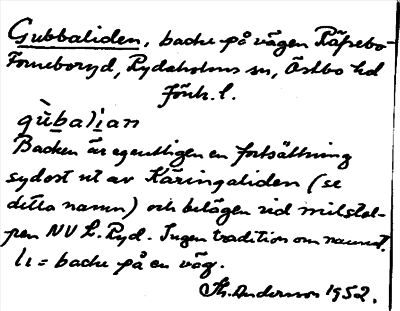 Gubbaliden, backe på vägen Räfsebo-
Forneboryd, Rydaholms sn, Östbo hd
Jönk. l.
gùbalian
Backen är egentligen en fortsättning
sydost ut av Käringaliden (se
detta namn) och belägen vid milstol-
pen NV L. Ryd. Ingen tradition om namnet.
li = backe på en väg.
Th. Anderson 1952.